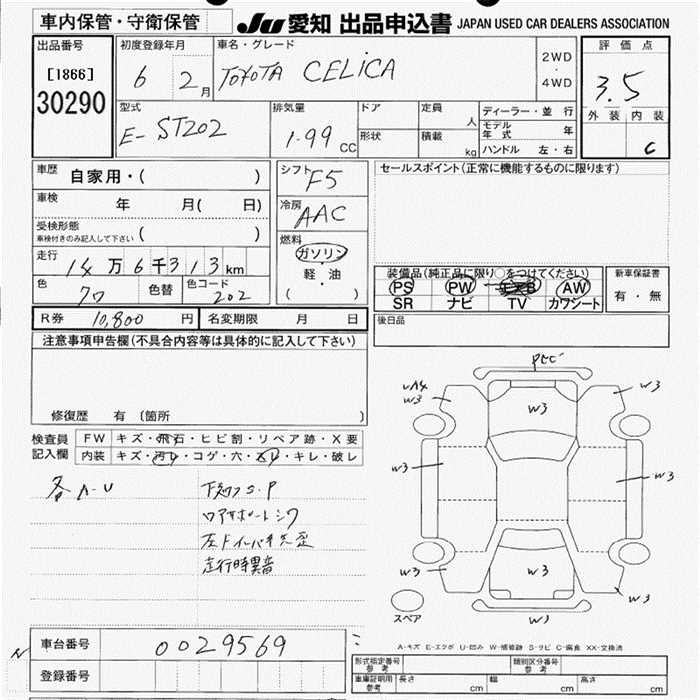 車内保管・守衛保管 JU 愛知 出品申込書 JAPAN USED CAR DEALERS ASSOCIATION
出品番号 初度登録年月 車名・グレード 評価点
[1866] 6 2月 TOYOTA CELICA 2WD・4WD 3.5
30290
型式 排気量 ドア 定員 人 ディーラー・並行 外装 内装
E- ST202 1.99 CC 形状 積載 kg モデル年式 年 C
ハンドル 左・右
車歴 自家用・( ) シフト F5 セールスポイント(正常に機能するものに限ります)
車検 年 月( 日) 冷房 AAC
受検形態 車検付きのみ記入して下さい ( )
燃料 ガソリン
走行 14万6千313km 軽・油 装備品(純正品に限り○をつけてください) 新車保証書
色 色替 色コード 202 ( ) PS PW エアB AW 有・無
SR ナビ TV カワシート
R券 10,800 円 名変期限 月 日 後日品
注意事項申告欄(不具合内容等は具体的に記入して下さい)
修復歴 有 (箇所 )
検査員 FW キズ・飛石・ヒビ割・リペア跡・X要
記入欄 内装 キズ・汚レ・コゲ・穴・スレ・キレ・破レ
各A-U
リアサポートシワ
走行時異音
W3
W3
W3
W3
W3
W3
W3
W3
W3
スペア
A-キズ E-エクボ U-凹み W-補修跡 S-サビ C-腐食 XX-交換済
車台番号 0029569 型式指定番号 参考 類別区分番号 参考
登録番号 車庫証明用 参考 長さ cm 幅 cm 高さ cm